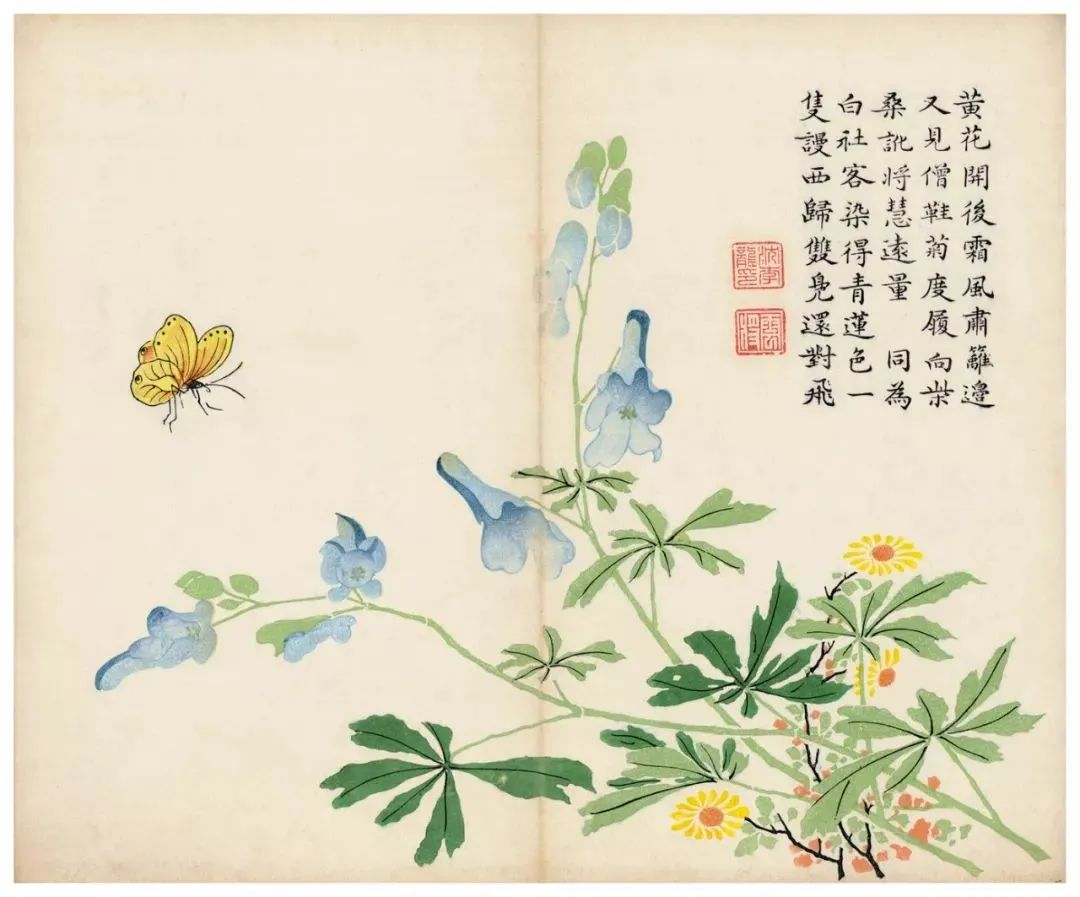 黃花開後霜風肅籬邊
又見僧鞋菊度履向柴
桑訛將慧遠量 同為
白社客染得青蓮色一
隻謾西歸雙鳧還對飛